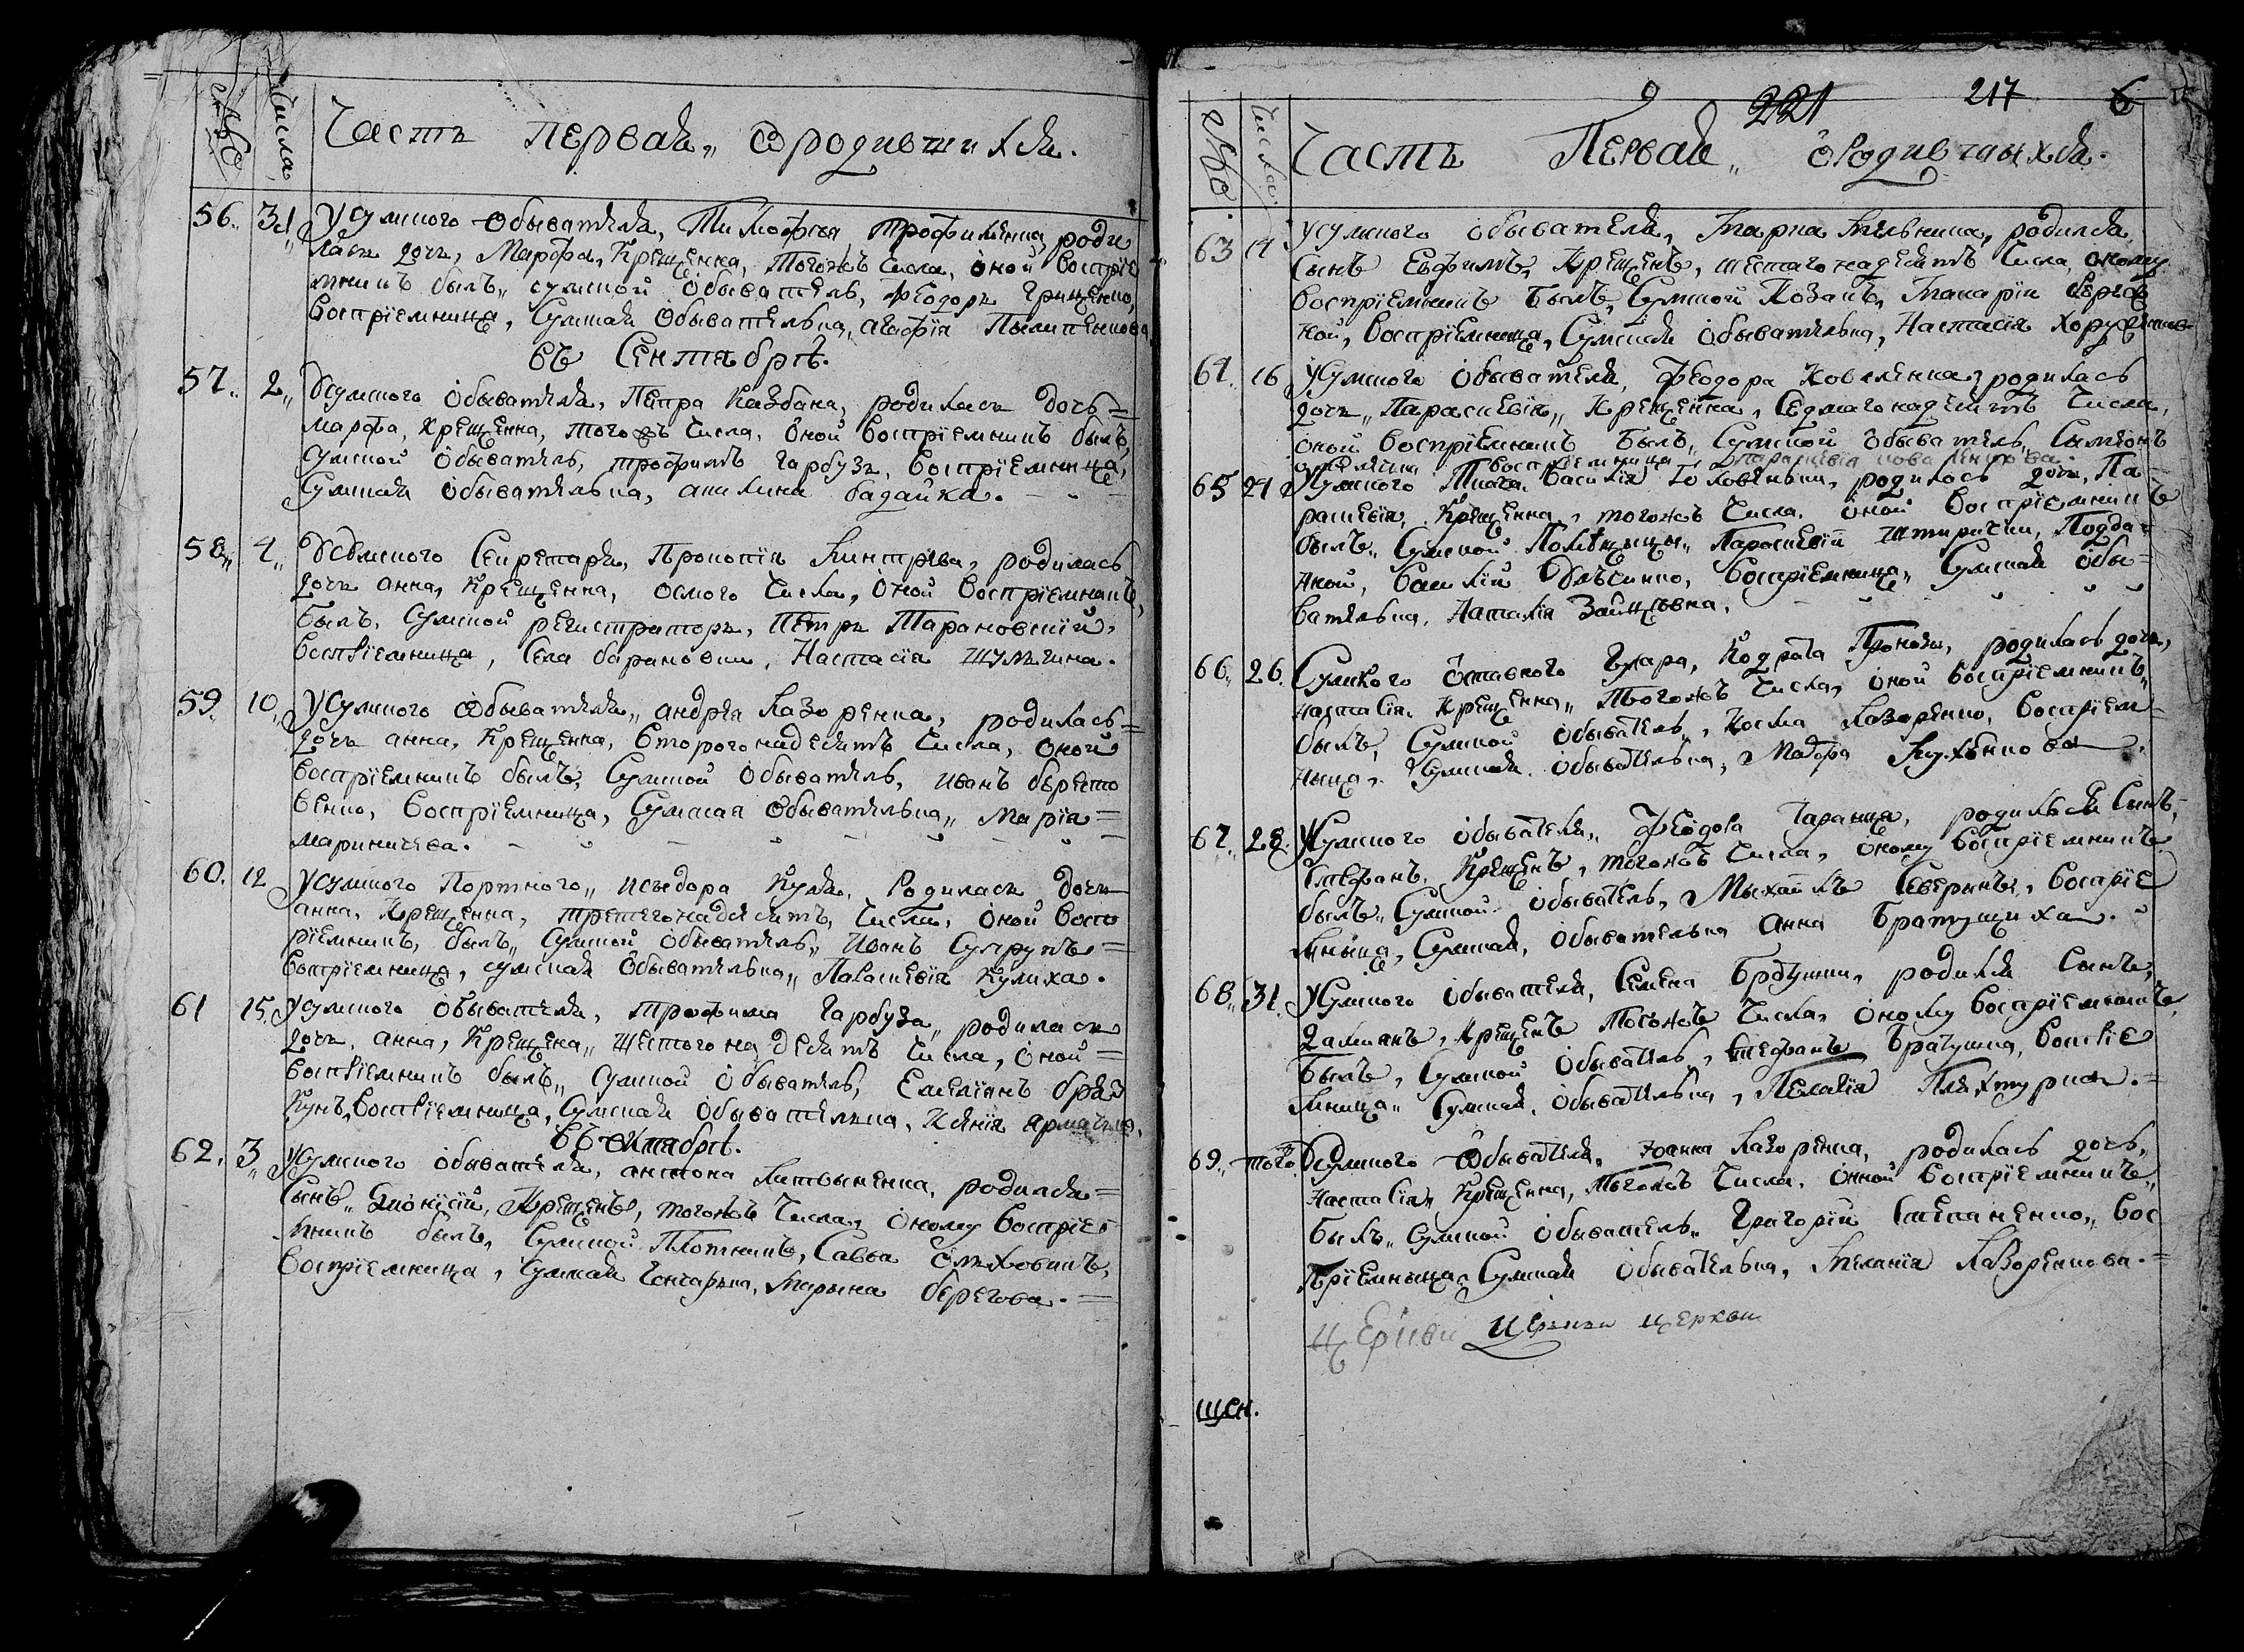 Число
Часть первая„ Ѡродившихся.
56. 31„ Усумского Ѡбывателя, Тимофея Трофименка, роди
лась дочь, Марфа, Крещенна, тогожъ числа, оной воспріе
мникъ былъ„ сумской обыватель, Феодоръ Грищенко,
воспріемница, Сумская обывателька, Агафія Пылипенкова
въ Сентябрѣ.
57. 2„ Усумского обывателя, Петра Казбана, родилась дочь=
марфа, крещенна, тогожъ числа, оной воспріемникъ былъ,
сумской обыватель, трофимъ гарбузъ, воспріемница,
Сумская обывателька, акилина бадайка.
58„ 4„ Усумского Секретаря, Прокопія, родилась
дочь анна, крещенна, осмого числа, оной воспріемникъ,
былъ, Сумской регистраторъ, Петръ Тарановскій,
воспріемница, села барановки, Настасія Шумлина.
59. 10„ Усумского Ѡбывателя„ андрея Лазоренка, родилась=
дочь анна, крещенна, второгонадесятъ числа, оной
воспріемникъ былъ, Сумской обыватель, иванъ берето
венко, воспріемница, Сумская Ѡбывателька„ Марія=
мариничева.
60. 12 Усумского Портного„ исыдора Кулѣ, родилась дочь
анна, крещенна, третегонадесятъ, числа, оной восп
ріемникъ, былъ„ Сумской обыватель„ Иванъ Супрунъ=
воспріемница, сумская обывателька„ Параскевія Кулиха.
61 15. Усумского обывателя, трофима гарбуза„ родилась
дочь, анна, крещена„ шестогонадесятъ числа, оной=
воспріемникъ былъ„ Сумской обыватель, Емеліянъ
кунъ, воспріемница, Сумская обывателька, Ксенія
въ октябрѣ.
62. 3„ Усумского обывателя, антона Литвыненка, родился=
сынъ„ Діонисій, крещенъ, тогожъ числа, оному воспріе
мникъ былъ, Сумской Плотникъ, Савва
воспріемница, Сумская Гончарька, Марына берегова.=
221 217 6
Число
Часть Первая„ ородившыхся.
63 14 Усумского обывателя, родился
сынъ Евфимъ, крещенъ, шестагонадесятъ числа, оному
воспріемникъ былъ, Сумской Козакъ, Макарій берего
кой, воспріемница, Сумская обывателька, Настасія
64. 16 Усумского обывателя, Феодора Коваленка, родилась
дочь„ Параскевія„ крещенна, седмагонадесятъ числа,
оной воспріемникъ былъ„ Сумской обыватель, Сымеонъ
воспріемница Параскевія
65 24 Усумского Василія, родилась дочь, Па=
раскевія, крещенна, тогожъ числа, оной воспріемникъ
былъ„ Сумской Помѣщицы„ Параскевіи Подда=
нной, Василій, воспріемница„ Сумская обы=
вателька, Наталія Зайцовна.
66„ 26. Сумкого оставного гусара, Кодрата, родилась дочь,
Настасія, крещенна„ тогожъ числа, оной воспріемникъ,
былъ, Сумской обыватель„ Косма Лазоренко, воспріем=
ныца, Сумская обывателька,
67„ 28. Усумского обывателя„ Феодора Таранца, родился сынъ,
Стефанъ, крещенъ, тогожъ числа, оному воспріемникъ
былъ„ Сумской обыватель, Мыхаилъ Северинъ, воспріе
мныца, Сумская, обывателька Анна Братущиха.
68„ 31. Усумского обывателя, Семена Братушки, родился сынъ,
Даміанъ, крещенъ тогожъ числа, оному воспріемникъ
былъ, Сумской обыватель, Стефанъ Братушка, воспріе
мница„ Сумская, обывателька, Пелагія
69„ того. Усумского Ѡбывателя, Іоанна Лазоренка, родилась дочь,
Настасія„ крещенна, тогожъ числа, онной воспріемникъ
былъ„ Сумской обыватель„ Григорій Степаненко„ вос
пріемныца, Сумская обывателька, Меланія Лазоренкова.=
церкви церкви церкви